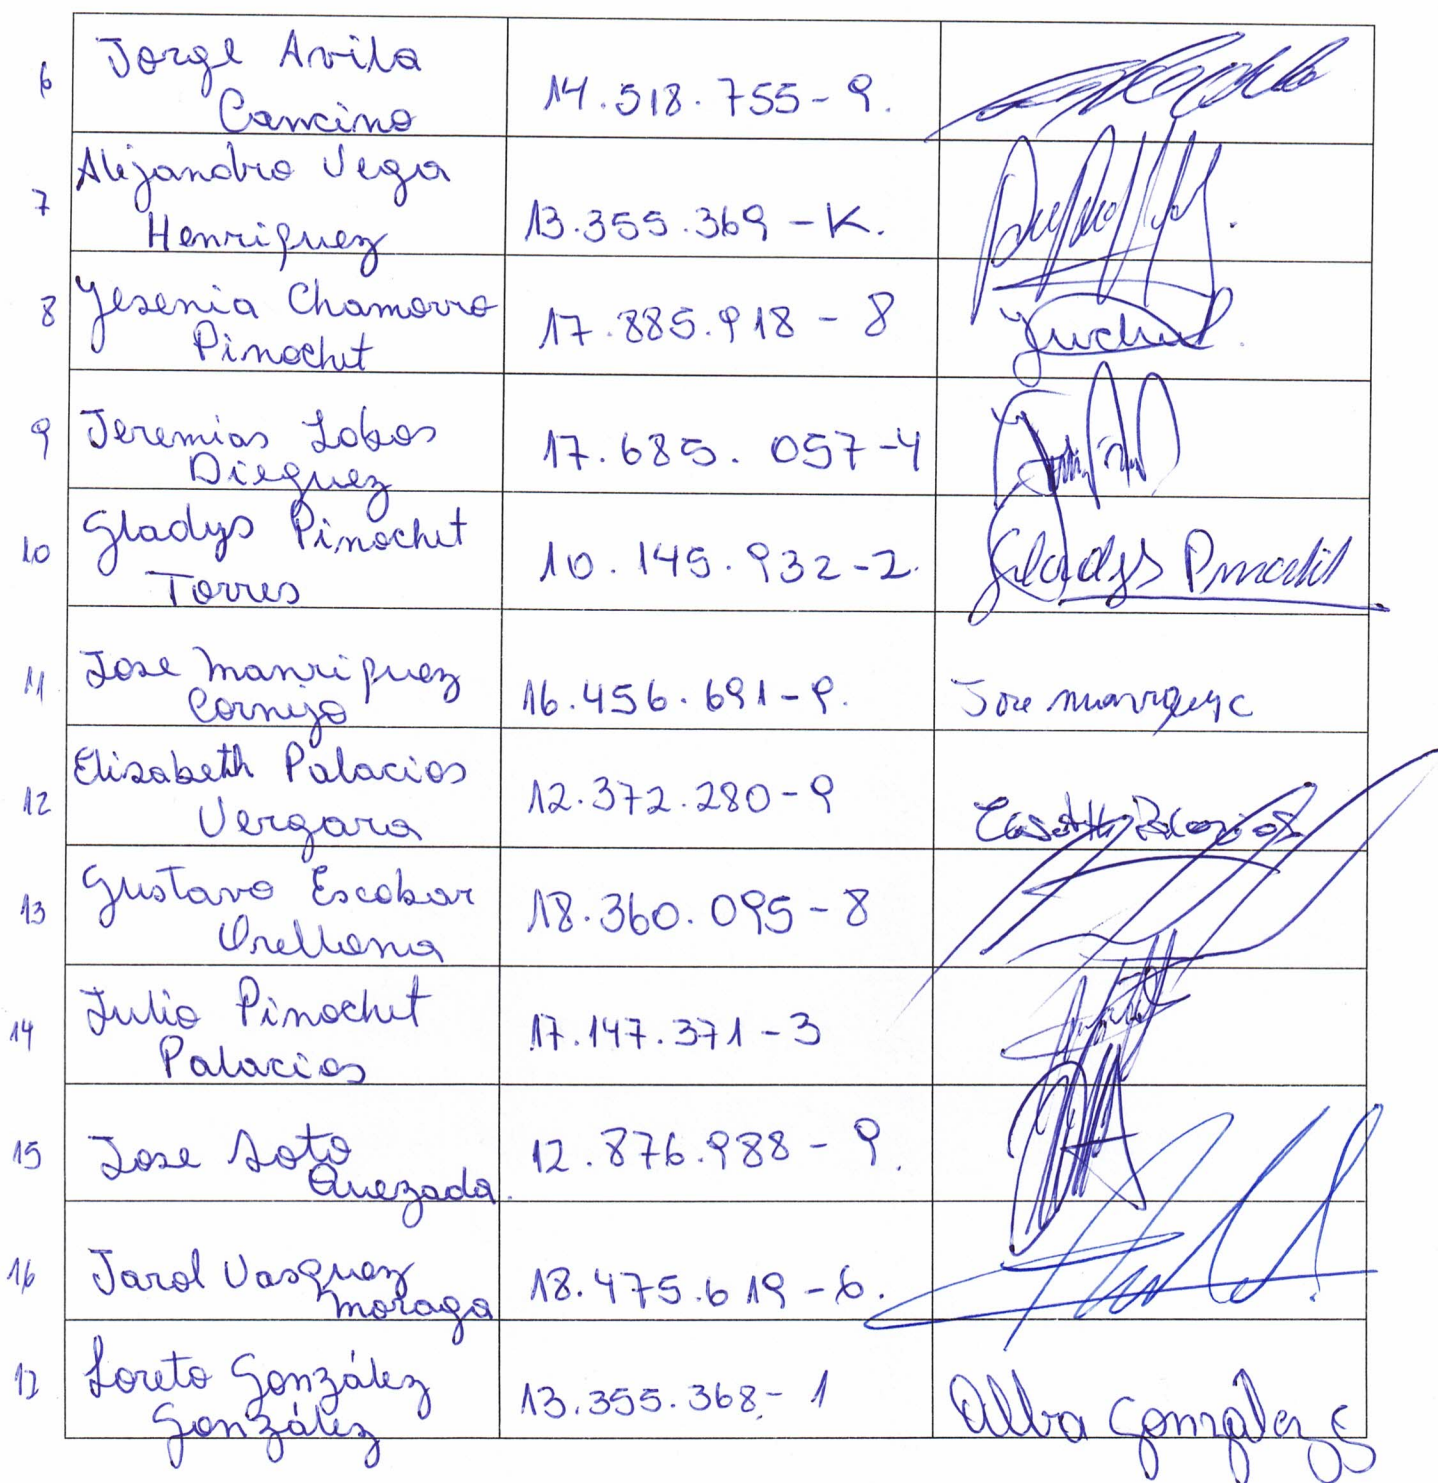 6 Jorge Avila
Cancino 14.518.755-9.
7 Alejandro Vega
Henriquez 13.355.369-K.
8 Yesenia Chamorro
Pinochet 17.885.918-8
9 Jeremias Lobos
Dieguez 17.685.057-4
10 Gladys Pinochet
Torres 10.145.932-2. Gladys Pinochet
11 Jose Manriquez
Cornejo 16.456.691-9. Jose
12 Elisabeth Palacios
Vergara 12.372.280-9
13 Gustavo Escobar
Orellana 18.360.095-8
14 Julio Pinochet
Palacios 17.147.371-3
15 Jose Soto
Quezada. 12.876.988-9.
16 Jarol Vasquez
Moraga 18.475.619-6.
17 Loreto González
González 13.355.368-1 Alba Gonzalez G